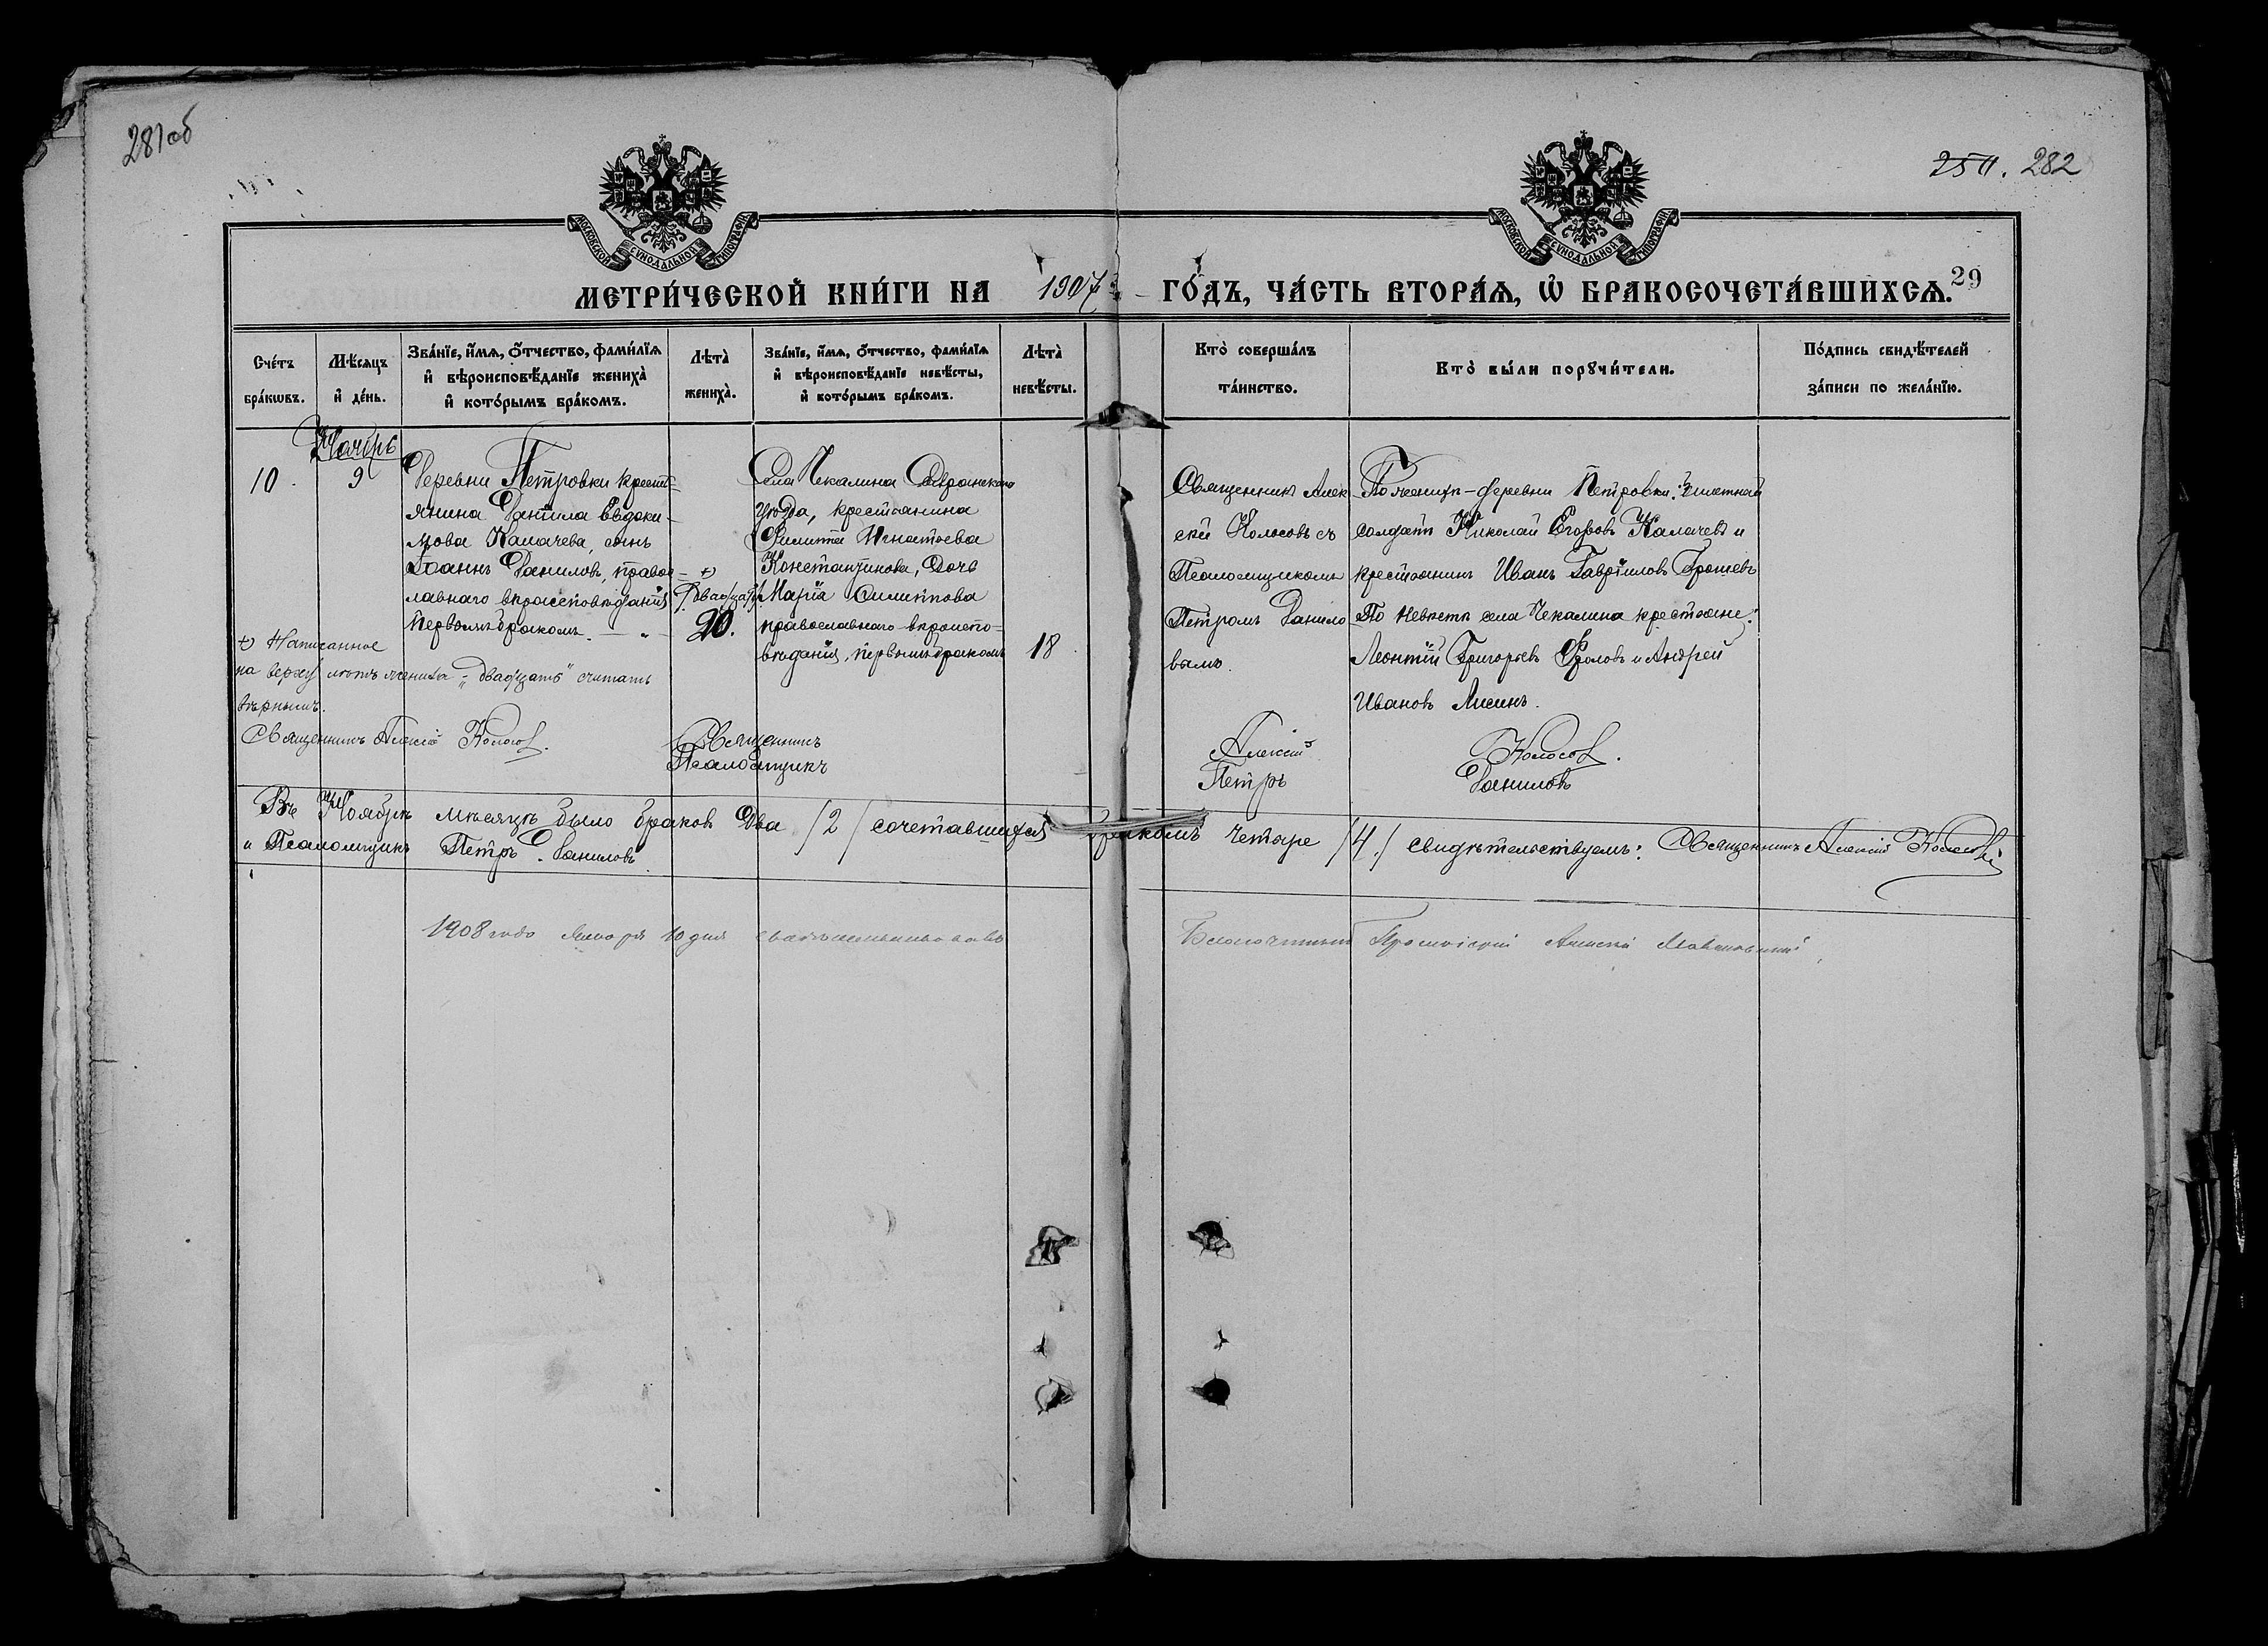 281об
2511. 282
МОСКОВСКОЙ СУНОДАЛЬНОЙ ТИПОГРАФІИ
МОСКОВСКОЙ СУНОДАЛЬНОЙ ТИПОГРАФІИ
МЕТРИ́ЧЕСКОЙ КНИ́ГИ НА 1907 ГО́ДЪ, ЧА́СТЬ ВТОРА́Ѧ, Ѡ҆ БРАКОСОЧЕТА́ВШИХСѦ. 29
Сче́тъ бра́кѡвъ.
Мѣ́сѧцъ и҆ де́нь.
Зва́нїе, и҆́мѧ, ѻ҆́тчество, фамѝлїѧ и҆ вѣроисповѣ́данїе жениха̀ и҆ кото́рымъ бра́комъ.
Лѣта̀ жениха̀.
Зва́нїе, и҆́мѧ, ѻ҆́тчество, фамѝлїѧ и҆ вѣроисповѣ́данїе невѣ́сты, и҆ кото́рымъ бра́комъ.
Лѣта̀ невѣ́сты.
Кто̀ соверша́лъ та́инство.
Кто̀ бы́ли порꙋчи́тели.
По́дпись свидѣ́телей за́писи по жела́нїю.
Ноябрь
10.
9
Деревни Петровки крестъ-
янина Даніила Евдоки-
мова Калачева, сынъ
Іоаннъ Даниловъ, право-
славнаго вѣроисповѣданія
первымъ бракомъ. — „ —
+) /двадцать/
20.
Села Чекалина Сызранскаго
уѣзда, крестьянина
Филиппа Игнатьева
Константинова, дочь
Марія Филиппова
православнаго вѣроиспо-
вѣданія, первымъ бракомъ
18
Священникъ Алек-
сій Колосовъ съ
Псаломщикомъ
Петромъ Данило
вымъ.
По женихѣ – деревни Петровки:
солдатъ Николай Егоровъ Калачевъ и
крестьянинъ Иванъ Гавріиловъ Грошевъ
По невѣстѣ села Чекалина крестьяне:
Леонтій Григорьевъ Фроловъ и Андрей
Ивановъ Лисинъ.
+) Написанное
на верху лѣтъ жениха „двадцать" считать
вѣрнымъ.
Священникъ Алексій Колосовъ.
Священникъ Алексій Колосовъ.
Псаломщикъ Петръ Даниловъ
Въ Ноябрѣ мѣсяцѣ было браковъ два /2/ сочетавшихся бракомъ четыре /4./ свидѣтельствуемъ: Священникъ Алексій Колосовъ
и Псаломщикъ Петръ Даниловъ.
1908 года Января 10 дня свидѣтельствовалъ Благочинный Протоіерей Алексій